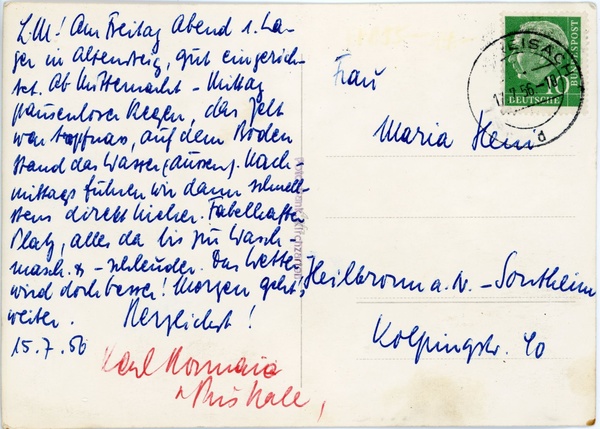 L.M! Am Freitag Abend 1. La-
ger in Altensteig, gut eingerich-
tet. Ab Mitternacht - Mittag
pausenloser Regen, das Zelt
war tropfnass, auf dem Boden
stand das Wasser (aussen). Nach-
mittags fuhren wir dann schnell-
stens direkt hieher. Fabelhafter
Platz, alles da bis zu Wasch-
masch. & - schleuder. Das Wetter
wird doch besser! Morgen geht's
weiter. Herzlichst!
15.7.56
Karl
DEUTSCHE
BUNDESPOST
10
Frau
Maria
Heilbronn a.N. - Sontheim
Kolpingstr. 40